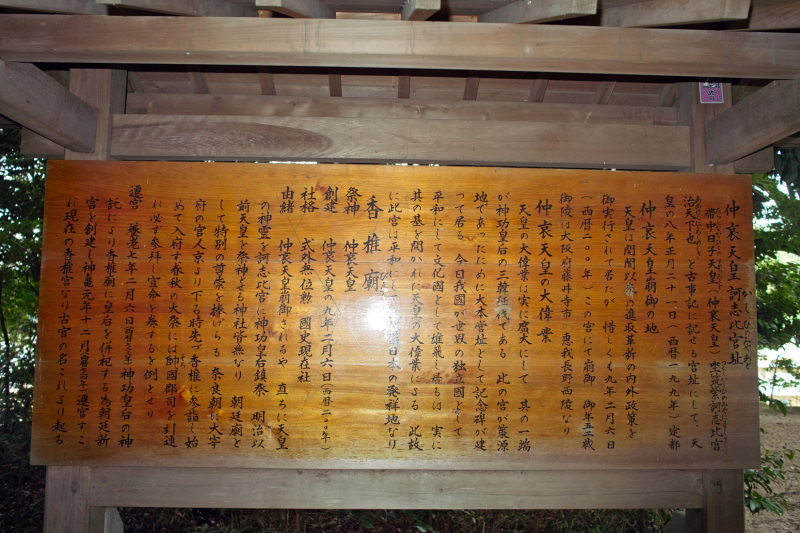 仲哀天皇 訶志比宮址
帯中日子天皇(仲哀天皇) 坐筑紫訶志比宮
治天下也 と古事記に記せる宮址にして、天
皇の八年正月二十一日(西暦一九九年)定都
天皇は開闢以来の進取革新の内外政策を
御実行されて居たが 惜しくも九年二月六日
(西暦二〇〇年)この宮にて崩御 御年五二歳
御陵は大阪府藤井寺市 恵我長野西陵なり
仲哀天皇崩御の地
仲哀天皇の大偉業
天皇の大偉業は実に広大にして その一端
が神功皇后の三韓征伐である 此の宮が策源
地であったために大本営址として記念碑が建
って居る 今日我國が世界の独立國として
平和にして文化國として雄飛し居るは 実に
其の基を開かれた天皇の大偉業による 此故
に此宮は平和にし 日本の発祥地なり
香椎廟
祭神 仲哀天皇
創建 仲哀天皇の九年二月六日(西暦二〇〇年)
社格 式外無位勲 國史現在社
由緒 仲哀天皇崩御されるや 直ちに天皇
の神霊を訶志比宮に神功皇后鎮祭 明治以
前天皇を祭神とせる神社皆無なり 朝廷廟と
して特別の崇敬を捧げらる 奈良朝に大宰
府の官人京より下る時先づ香椎に参詣し始
めて入府す春秋の大祭には帥國郡司を引連
れ必ず参拝し宣命を奏するを例とせり
遷宮 養老七年二月六日 神功皇后の神
託により香椎廟に皇后を併祀する為朝廷新
宮を創建し神亀元年十二月 遷宮すこ
れ現在の香椎宮なり古宮の名これより起る